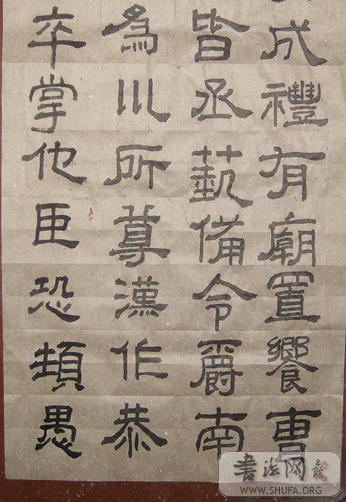 成禮有廟置饗曹
皆丞藝備令爵南
為以所尊漢作恭
卒掌他臣恐頓愚
書法网
WWW.SHUFA.ORG